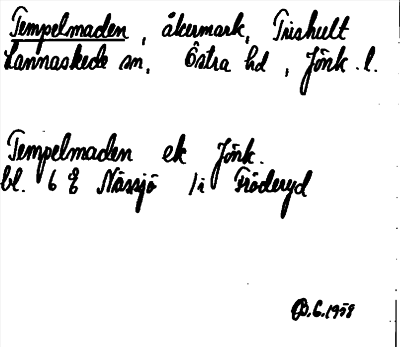 Tempelmaden, åkermark, Triskult
Lannaskede sn, Östra hd, Jönk. l.
Tempelmaden ek Jönk.
bl. 6 E Nässjö 1i Fröderyd
1959